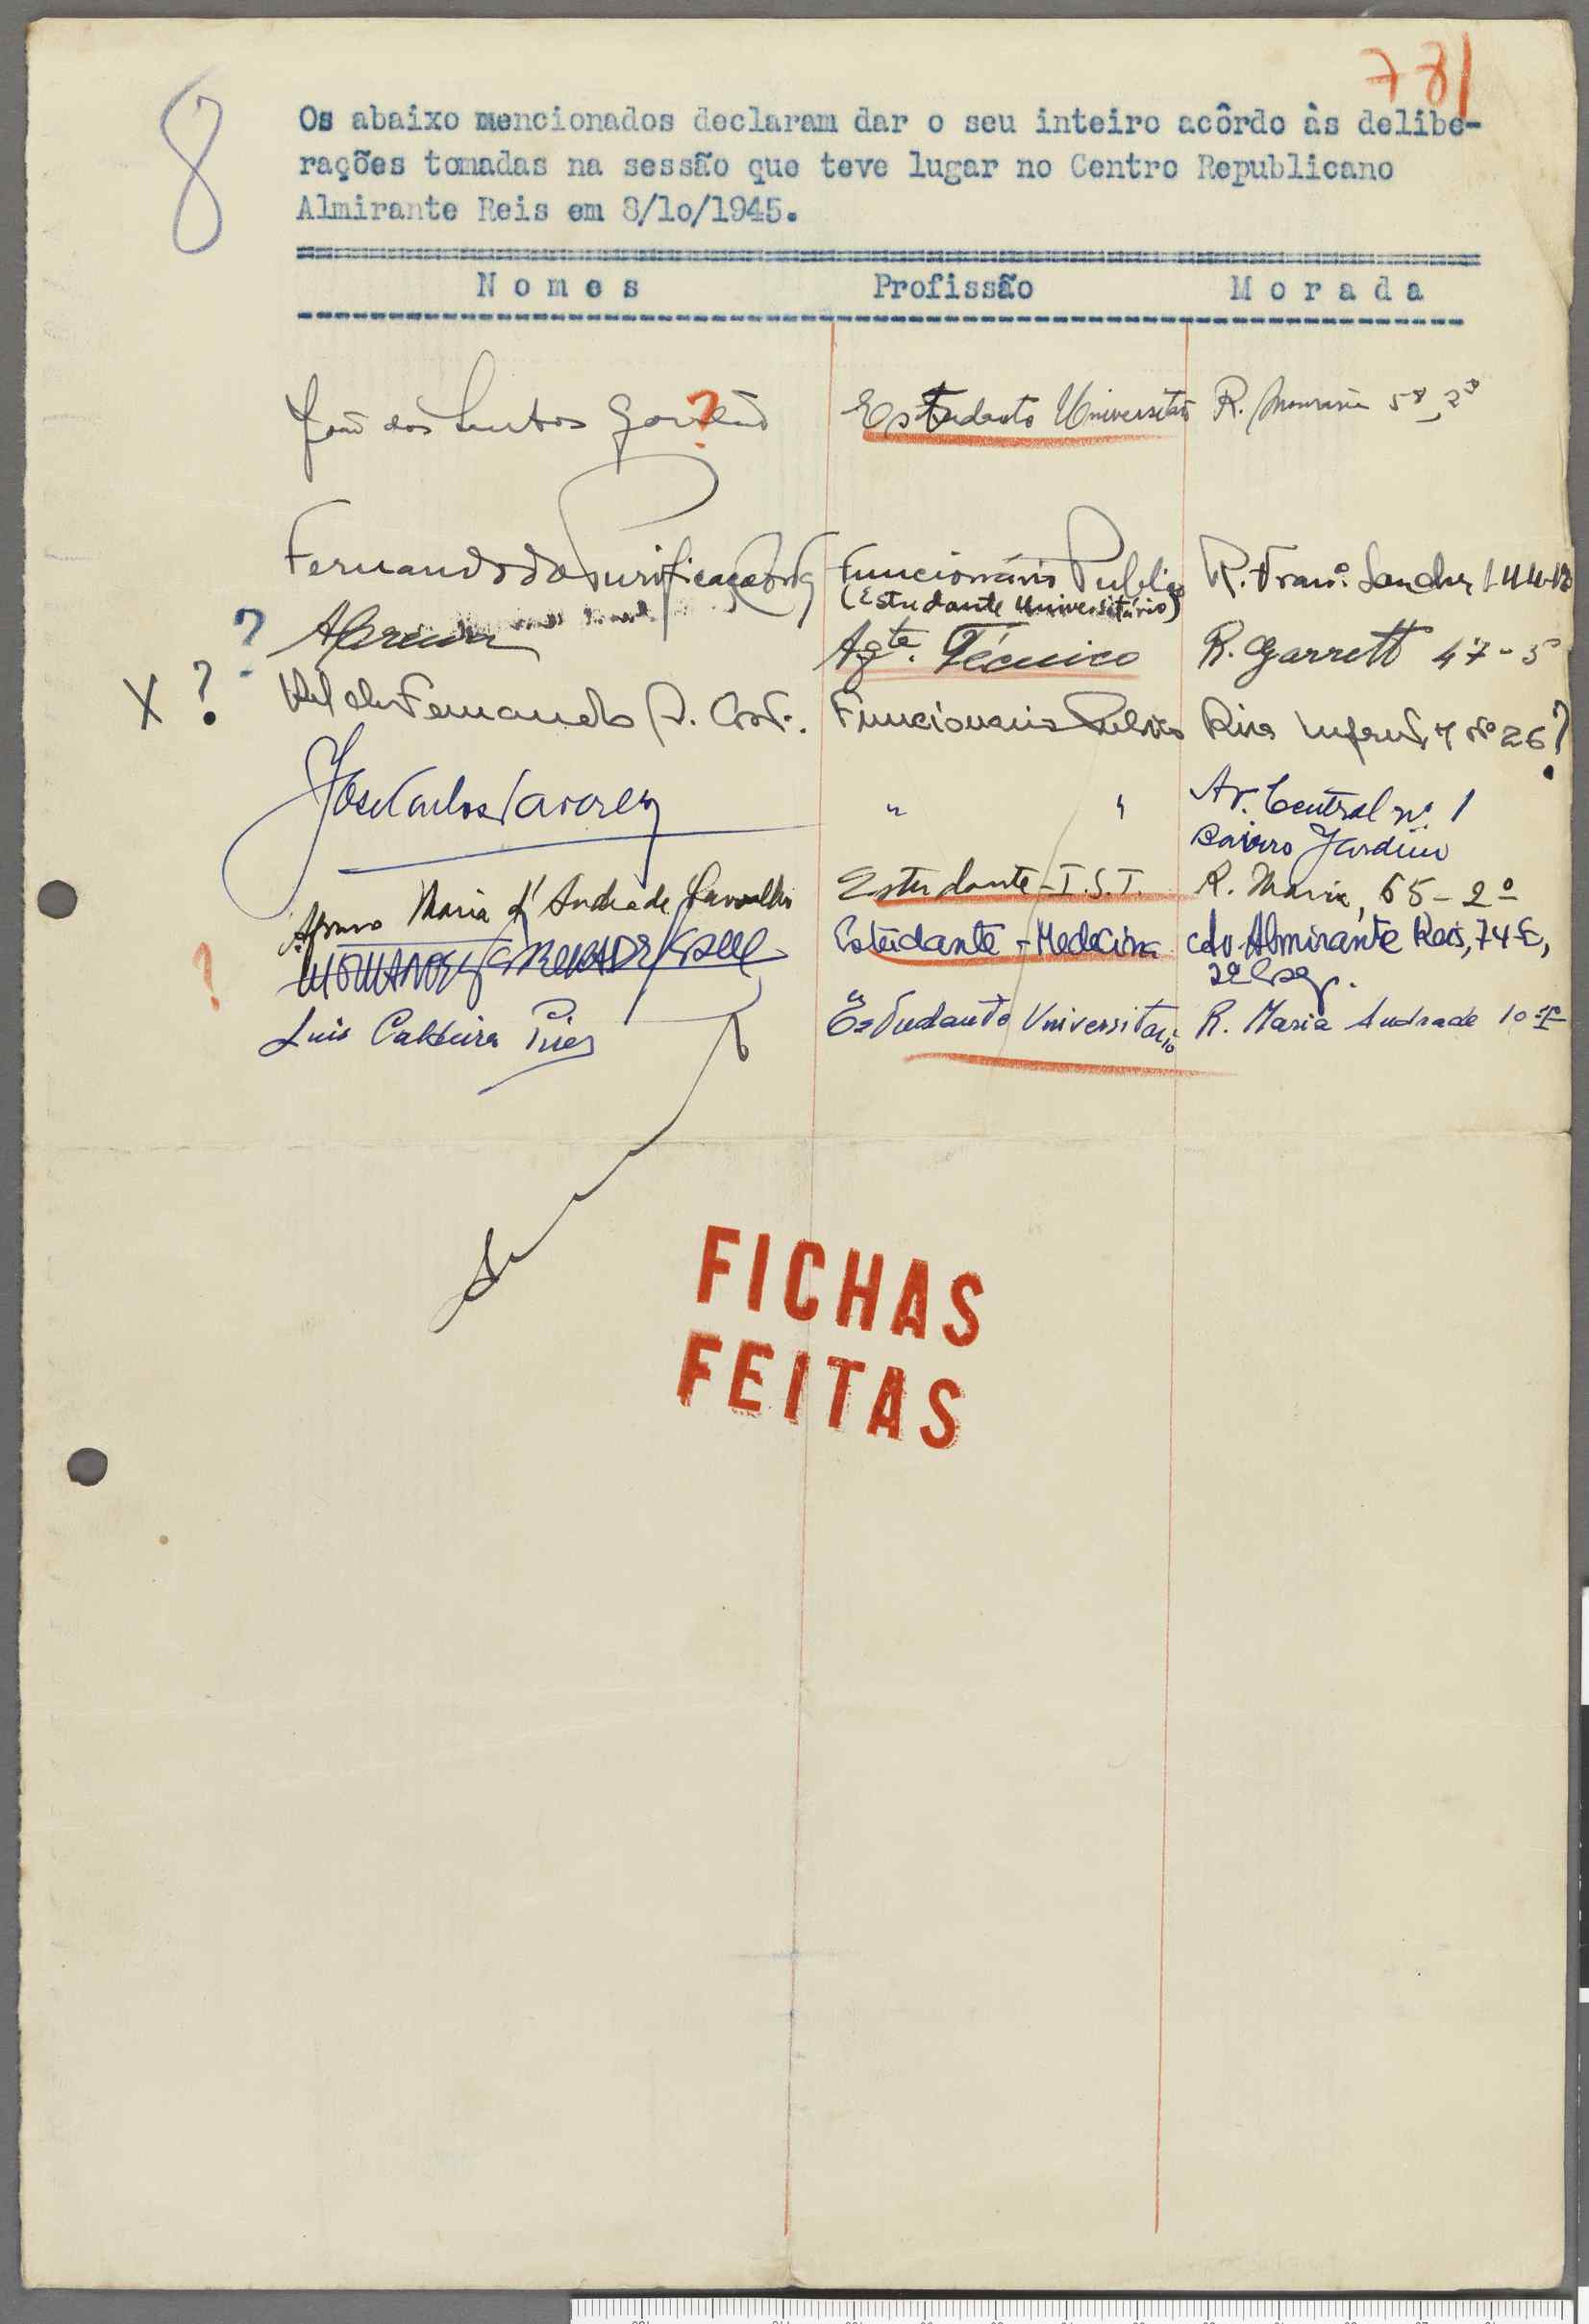 781
8
Os abaixo mencionados declaram dar o seu inteiro acôrdo às delibe-
rações tomadas na sessão que teve lugar no Centro Republicano
Almirante Reis em 8/1o/1945.
Nomes Profissão Morada
João dos Santos ? Estudante Universitário R. 58, 2º
Fernando da Purificação Funcionário Publico R. Franº. Sanches
(Estudante Universitário)
? Agte. Técnico R. Garrett 47-5º
X ? Fernando Funcionario Publico Rua nº 26 ?
José Carlos Tavares " " Av. Central nº 1
Bairro Jardim
Afonso Maria d'Andrade Carvalho Estudante - I.S.T. R. Maria, 65-2º
? Estudante - Medecina Av. Almirante Reis, 74-E,
2º Esq.
Luis Caldeira Pires Estudante Universitário R. Maria Andrade 10
FICHAS
FEITAS